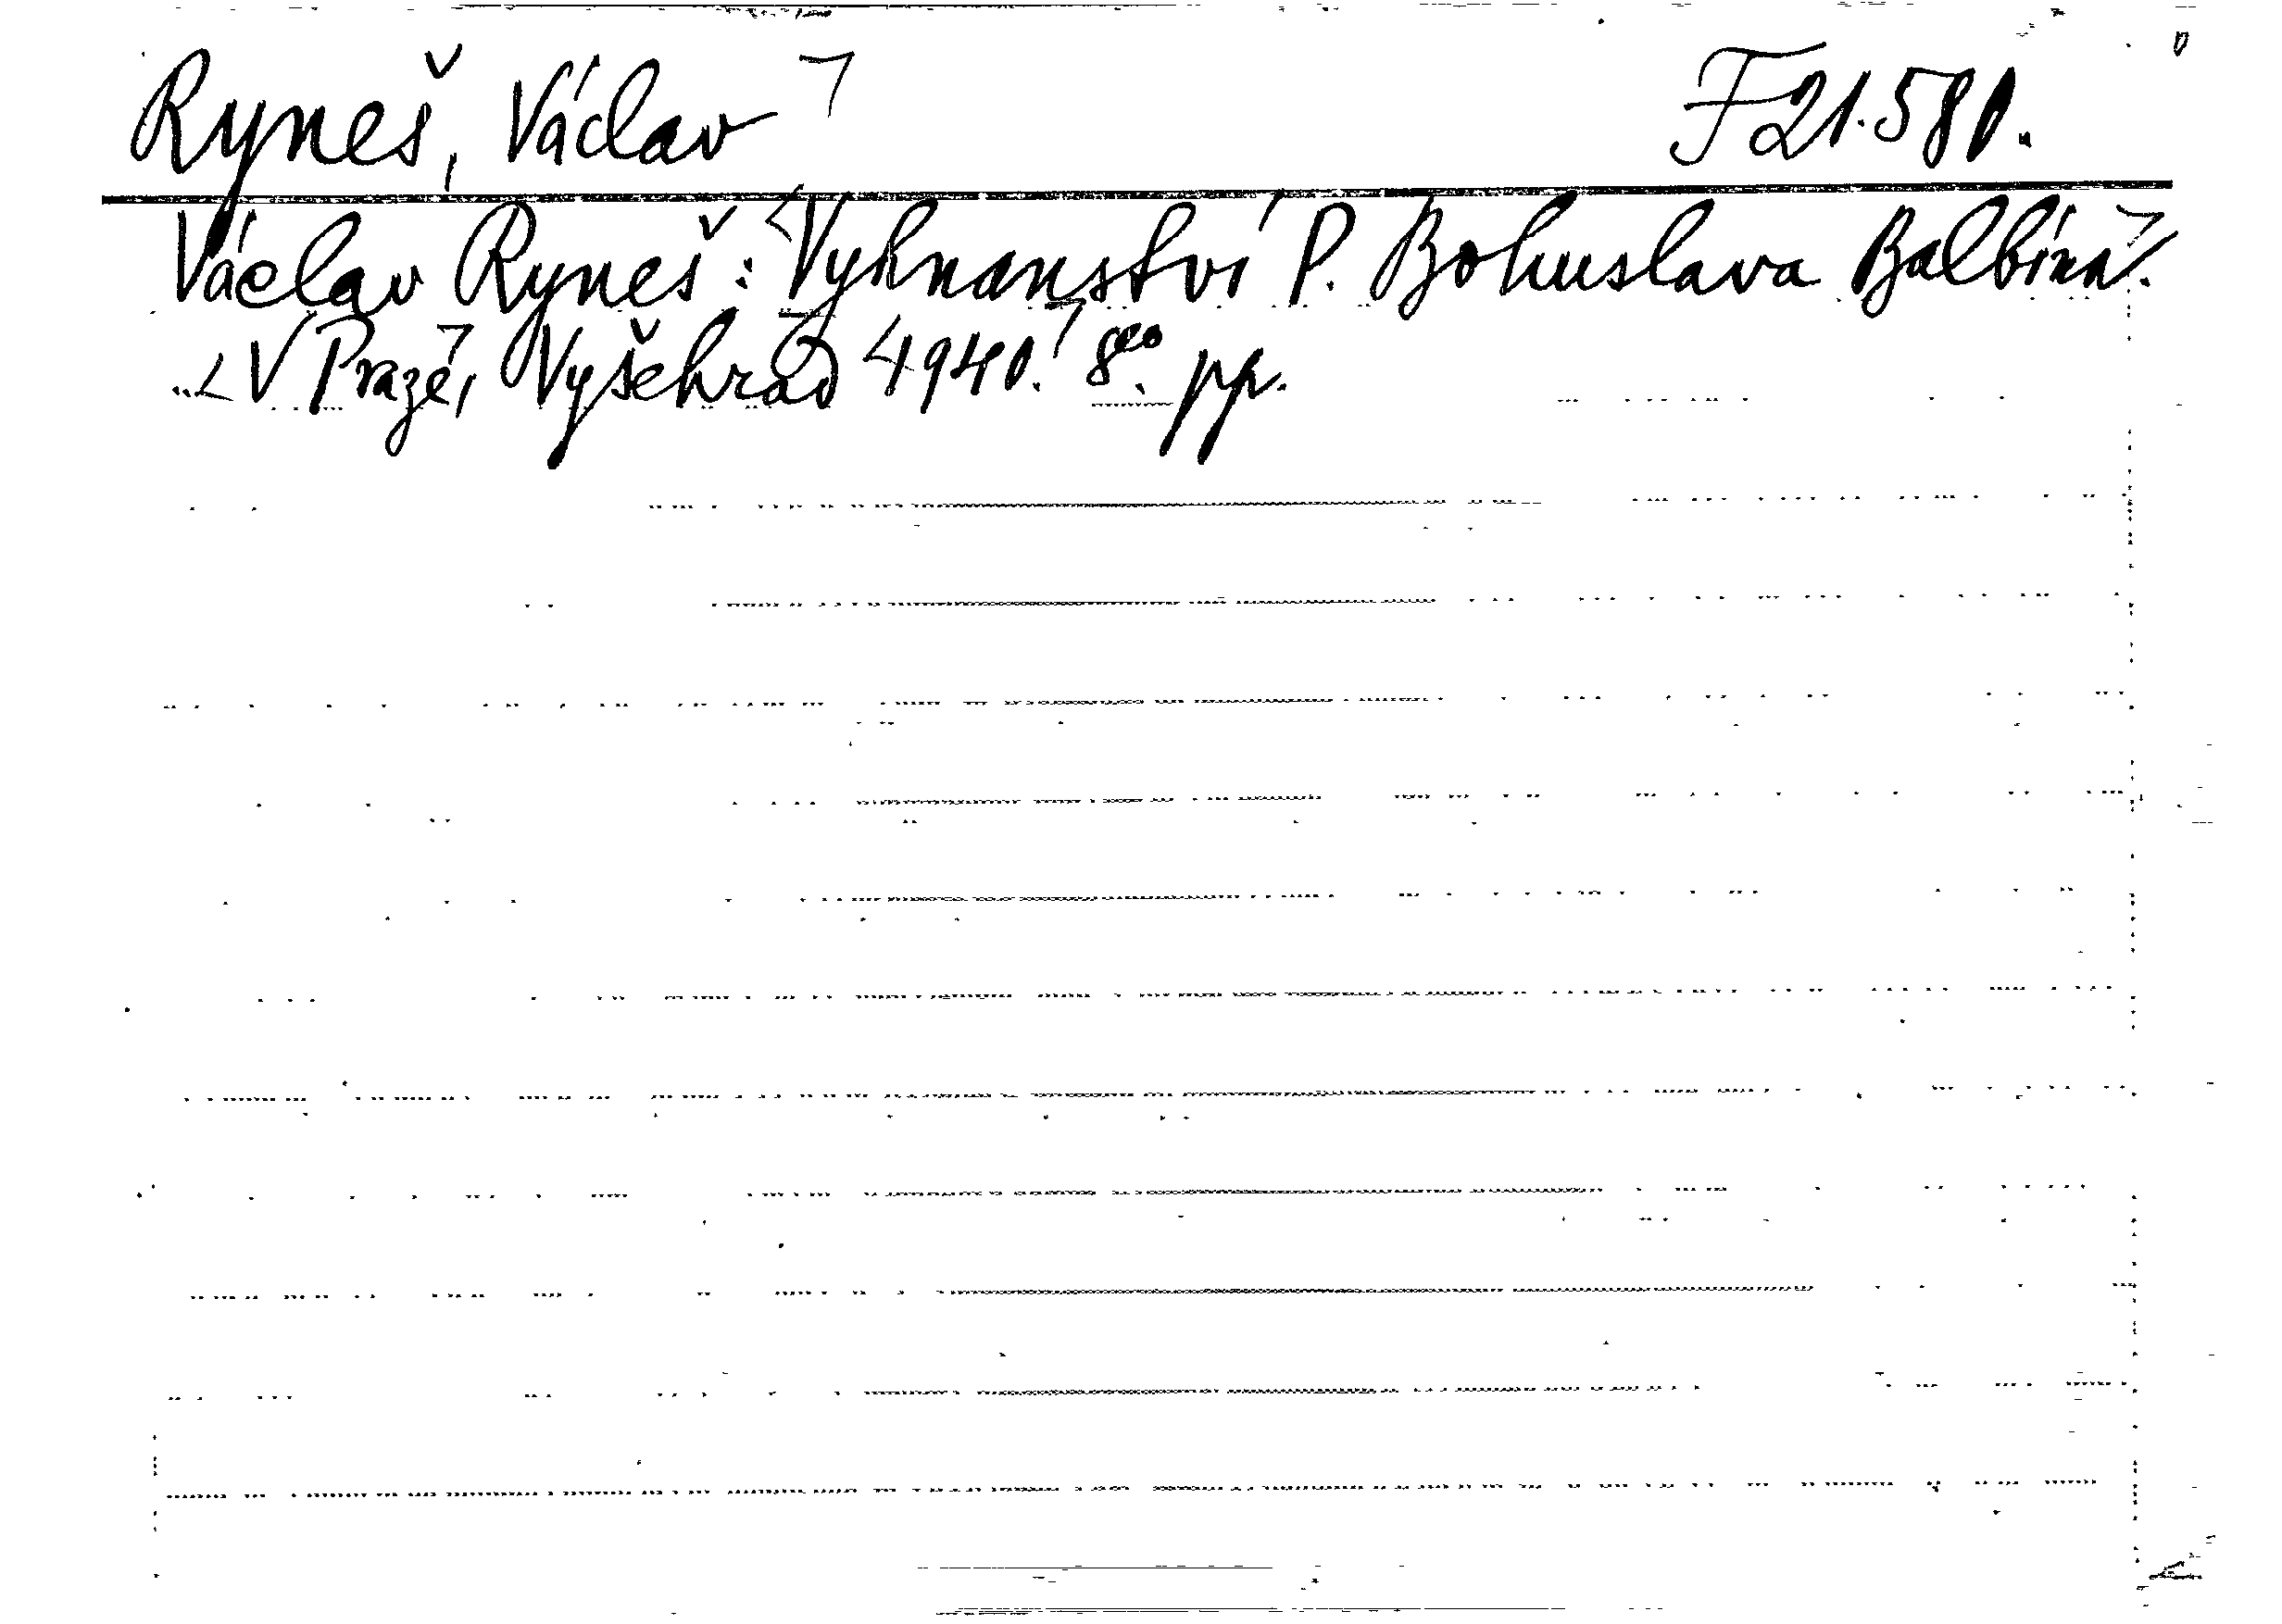 Ryneš, Václav F 21.580.
Václav Ryneš: Vyhnanství P. Bohuslava Balbína.
V Praze, Vyšehrad 1940. 8°. pp.